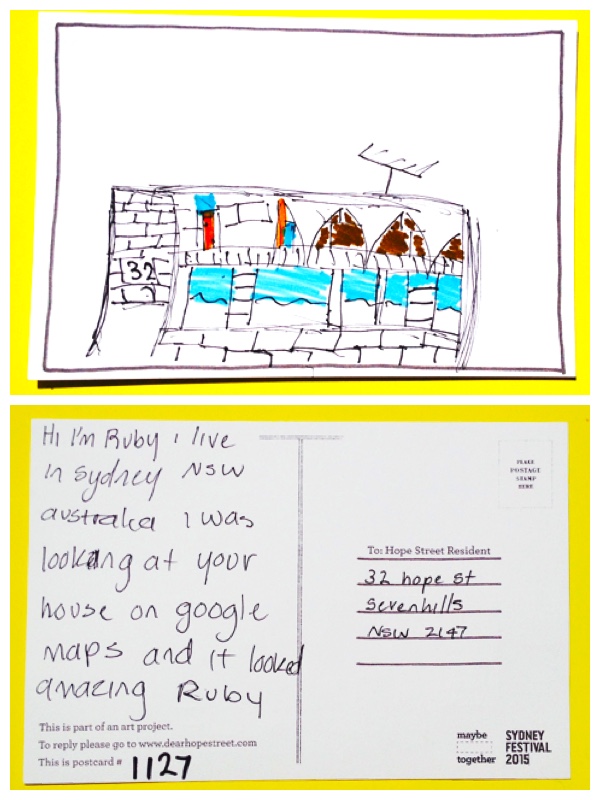 32
Hi I'm Ruby i live
in sydney NSW
australia i was
looking at your
house on google
maps and it looked
amazing Ruby
This is part of an art project.
To reply please go to www.dearhopestreet.com
This is postcard # 1127
PLACE
POSTAGE
STAMP
HERE
To: Hope Street Resident
32 hope st
sevenhills
NSW 2147
maybe
together
SYDNEY
FESTIVAL
2015